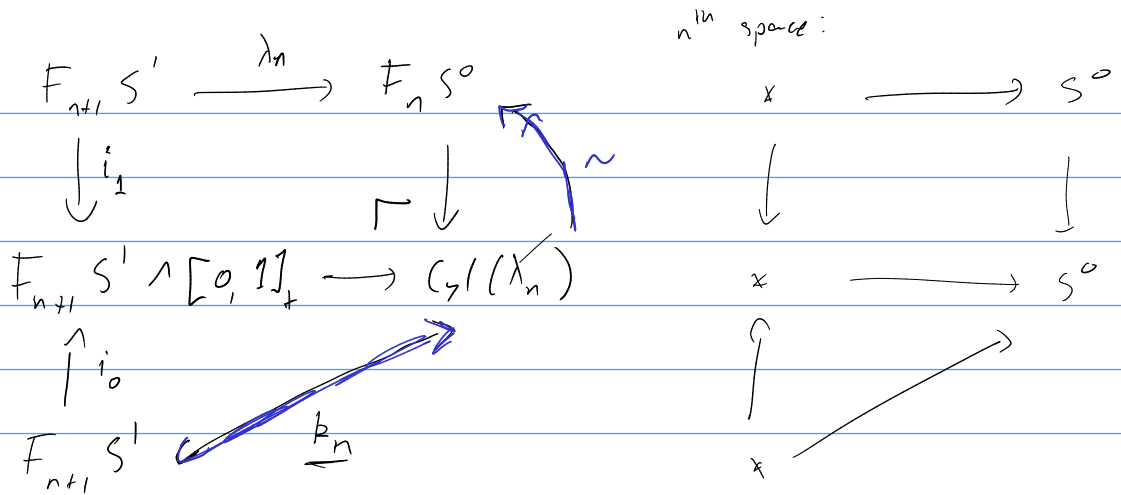 n^th space:
F_{n+1} S^1 →^{λ_n} F_n S^0 * → S^0
↓ i_1 ↓ ~ ↓ ↓
F_{n+1} S^1 ∧ [0, 1]_+ → Cyl(λ_n) * → S^0
↑ i_0 ↑
F_{n+1} S^1 k_n *